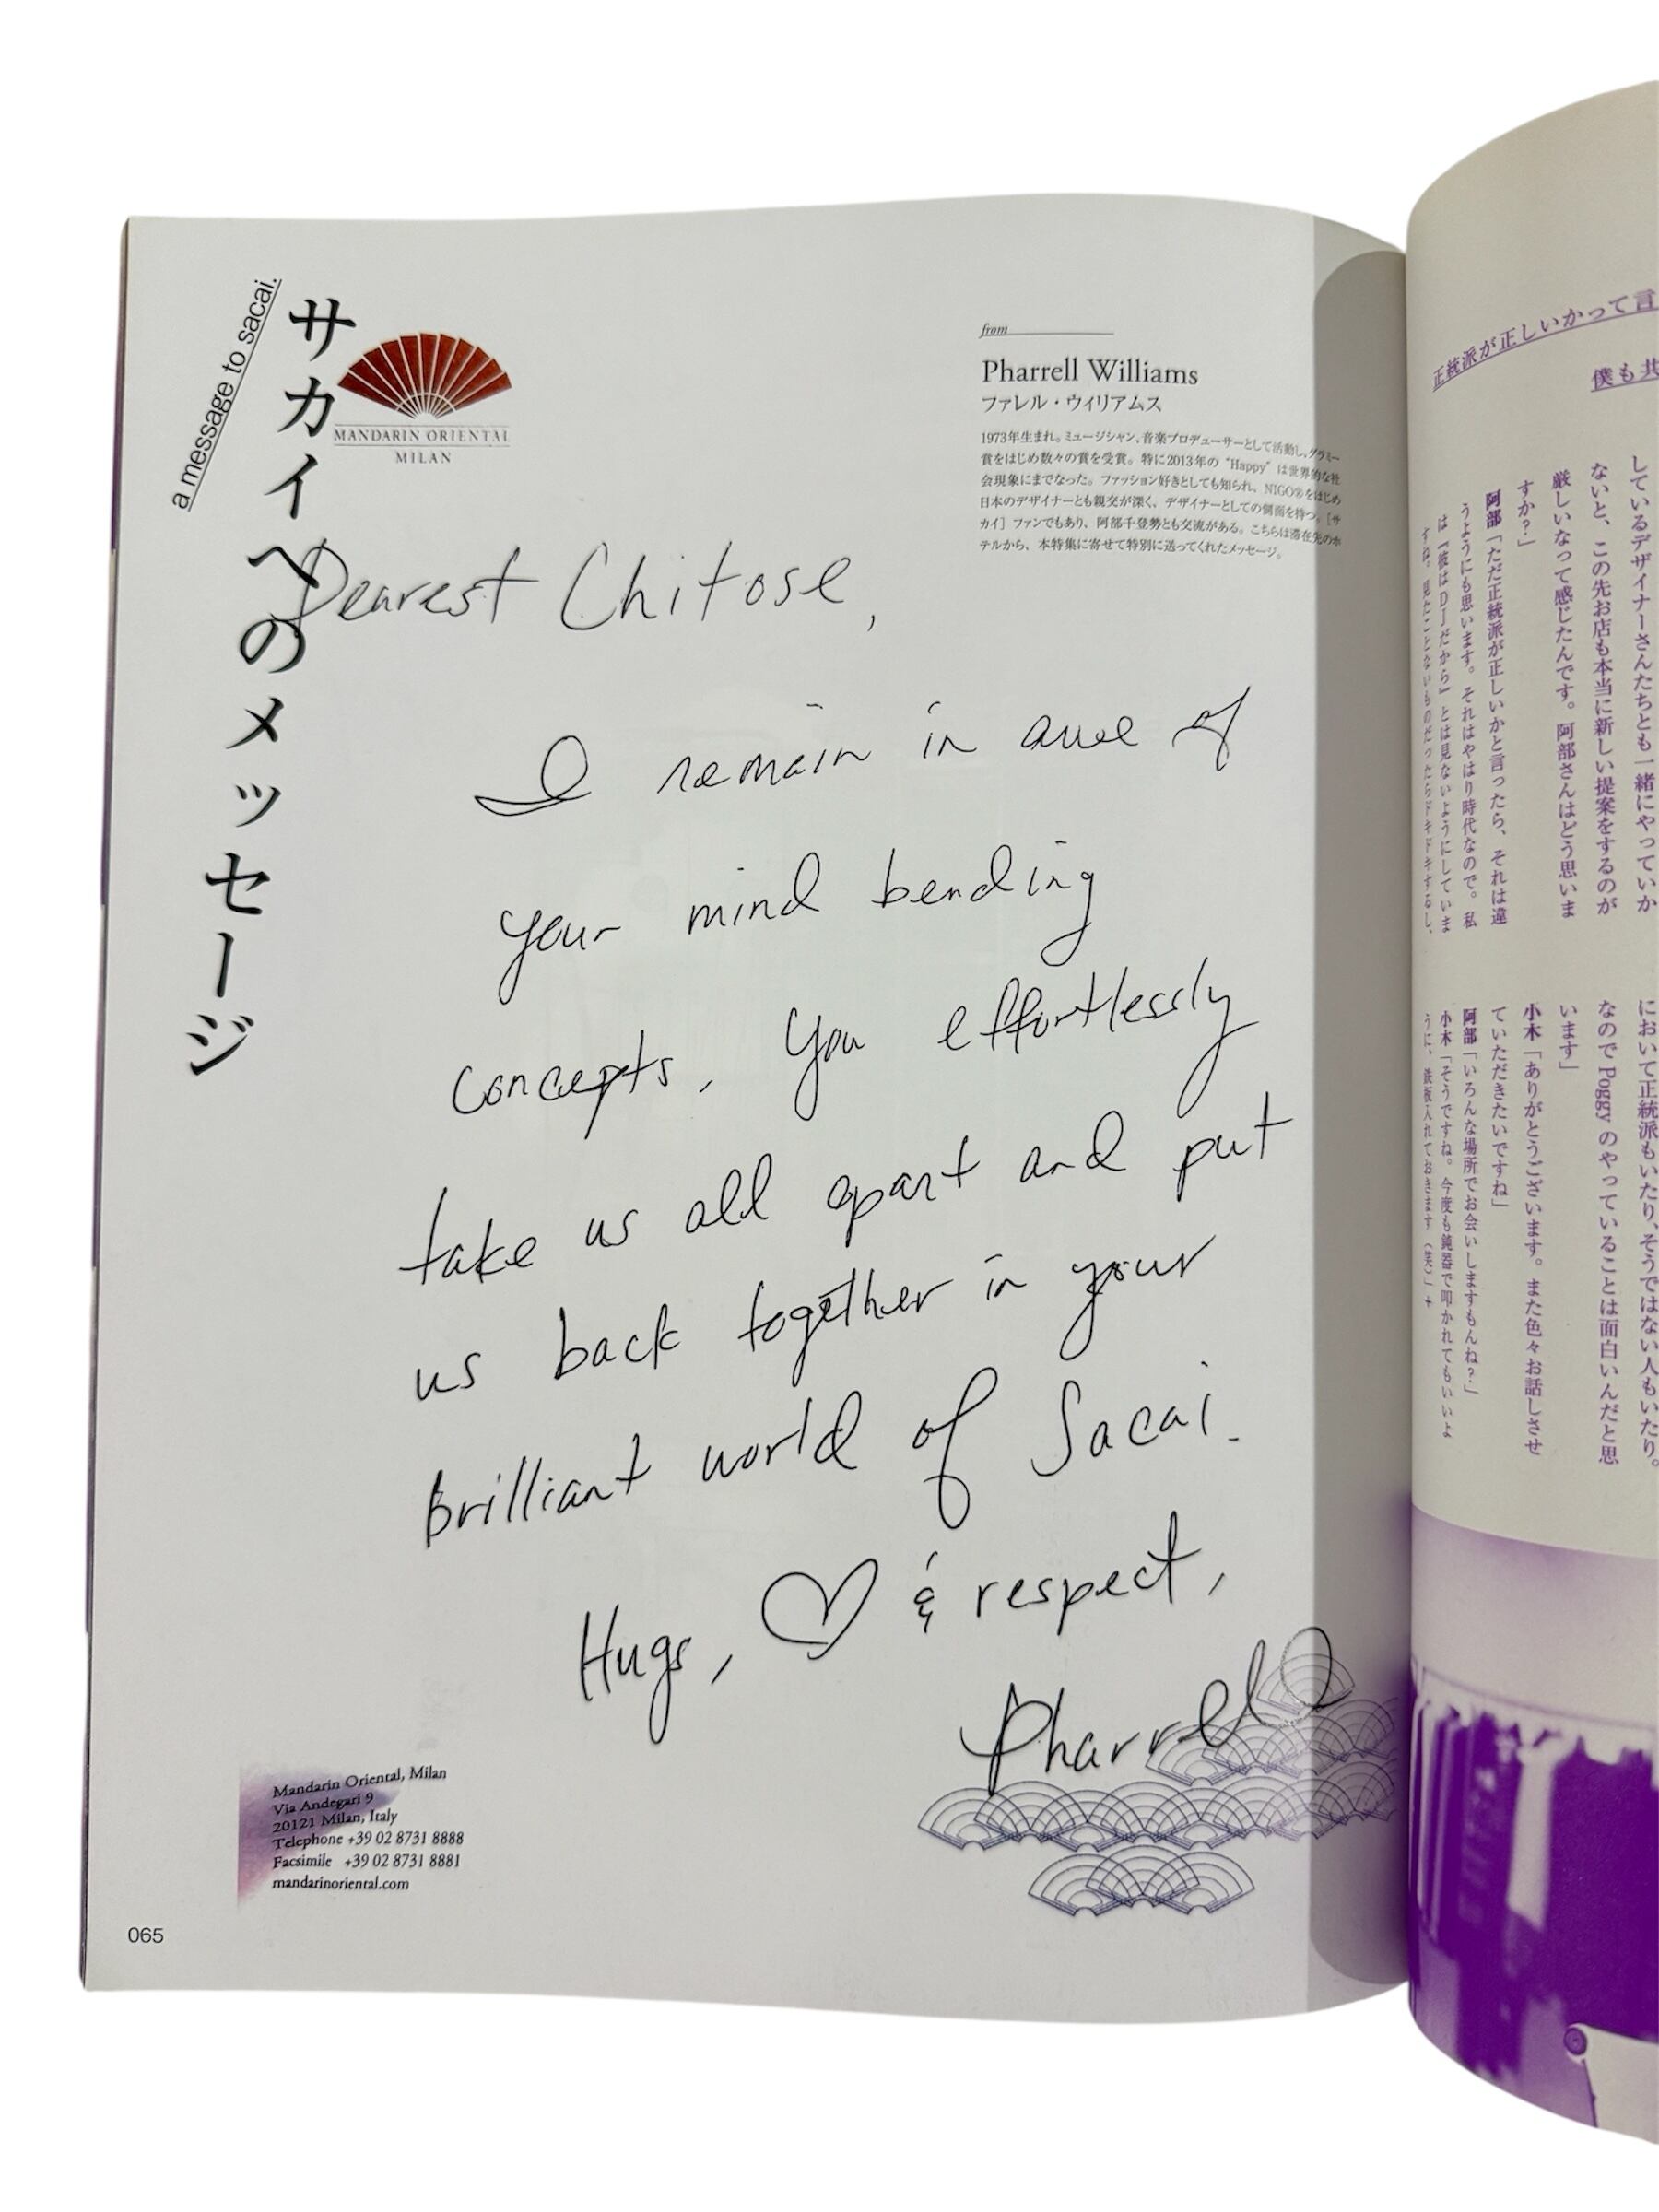 a message to sacai.
サカイへのメッセージ
MANDARIN ORIENTAL
MILAN
from
Pharrell Williams
ファレル・ウィリアムス
1973年生まれ。ミュージシャン、音楽プロデューサーとして活動し、グラミー
賞をはじめ数々の賞を受賞。特に2013年の“Happy”は世界的な社
会現象にまでなった。ファッション好きとしても知られ、NIGO®をはじめ
日本のデザイナーとも親交が深く、デザイナーとしての側面を持つ。［サ
カイ］ファンでもあり、阿部千登勢とも交流がある。こちらは滞在先のホ
テルから、本特集に寄せて特別に送ってくれたメッセージ。
Dearest Chitose,
I remain in awe of
your mind bending
concepts. You effortlessly
take us all apart and put
us back together in your
brilliant world of Sacai.
Hugs, ♡ & respect,
Pharrell
Mandarin Oriental, Milan
Via Andegari 9
20121 Milan, Italy
Telephone +39 02 8731 8888
Facsimile +39 02 8731 8881
mandarinoriental.com
065
正統派が正しいかって言
僕も共
しているデザイナーさんたちとも一緒にやっていか
ないと、この先お店も本当に新しい提案をするのが
厳しいなって感じたんです。阿部さんはどう思いま
すか？」
阿部「ただ正統派が正しいかと言ったら、それは違
うようにも思います。それはやはり時代なので。私
は『彼はDJだから』とは見ないようにしていま
すね。見たことないものだったらドキドキするし、
において正統派もいたり、そうではない人もいたり。
なのでPoggyのやっていることは面白いんだと思
います」
小木「ありがとうございます。また色々お話しさせ
ていただきたいですね」
阿部「いろんな場所でお会いしますもんね？」
小木「そうですね。今度も鈍器で叩かれてもいいよ
うに、鉄板入れておきます（笑）」＋